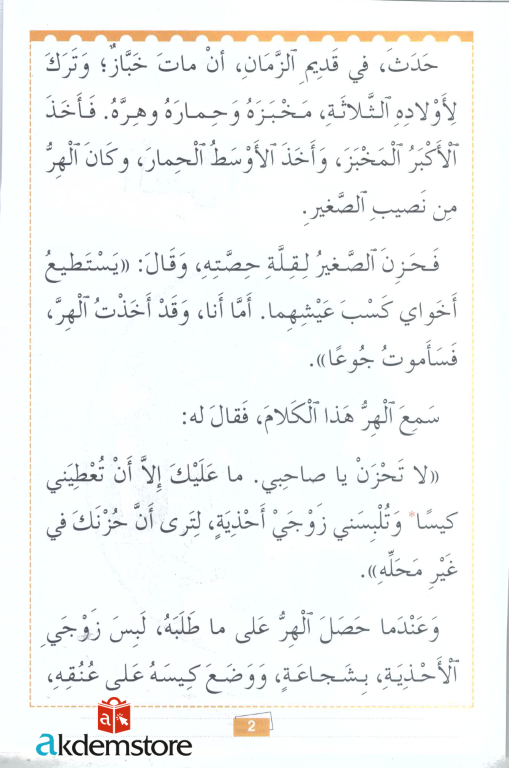 حَدَثَ، في قَديمِ ٱلزَّمَانِ، أنْ ماتَ خَبَّازٌ؛ وَتَرَكَ
لِأَوْلادِهِ ٱلثَّلاثَةِ، مَخْبَزَهُ وَحِمارَهُ وهِرَّهُ. فَأَخَذَ
ٱلْأَكْبَرُ ٱلْمَخْبَزَ، وَأَخَذَ ٱلأَوْسَطُ ٱلْحِمارَ، وكَانَ ٱلْهِرُّ
مِن نَصيبِ ٱلصَّغيرِ.
فَحَزِنَ ٱلصَّغيرُ لِقِلَّةِ حِصَّتِهِ، وَقَالَ: «يَسْتَطيعُ
أَخَواي كَسْبَ عَيْشِهِما. أَمَّا أنا، وَقَدْ أَخَذْتُ ٱلْهِرَّ،
فَسَأَموتُ جُوعًا».
سَمِعَ ٱلْهِرُّ هَذا ٱلْكَلامَ، فَقالَ له:
«لا تَحْزَنْ يا صاحِبي. ما عَلَيْكَ إِلاَّ أَنْ تُعْطِيَني
كيسًا* وَتُلْبِسَني زَوْجَيْ أَحْذِيَةٍ، لِتَرى أَنَّ حُزْنَكَ في
غَيْرِ مَحَلِّهِ».
وَعَنْدَما حَصَلَ ٱلْهِرُّ عَلى ما طَلَبَهُ، لَبِسَ زَوْجَيِ
ٱلْأَحْذِيَةِ، بِشَجاعَةٍ، وَوَضَعَ كيسَهُ عَلى عُنُقِهِ،
2
a
akdemstore